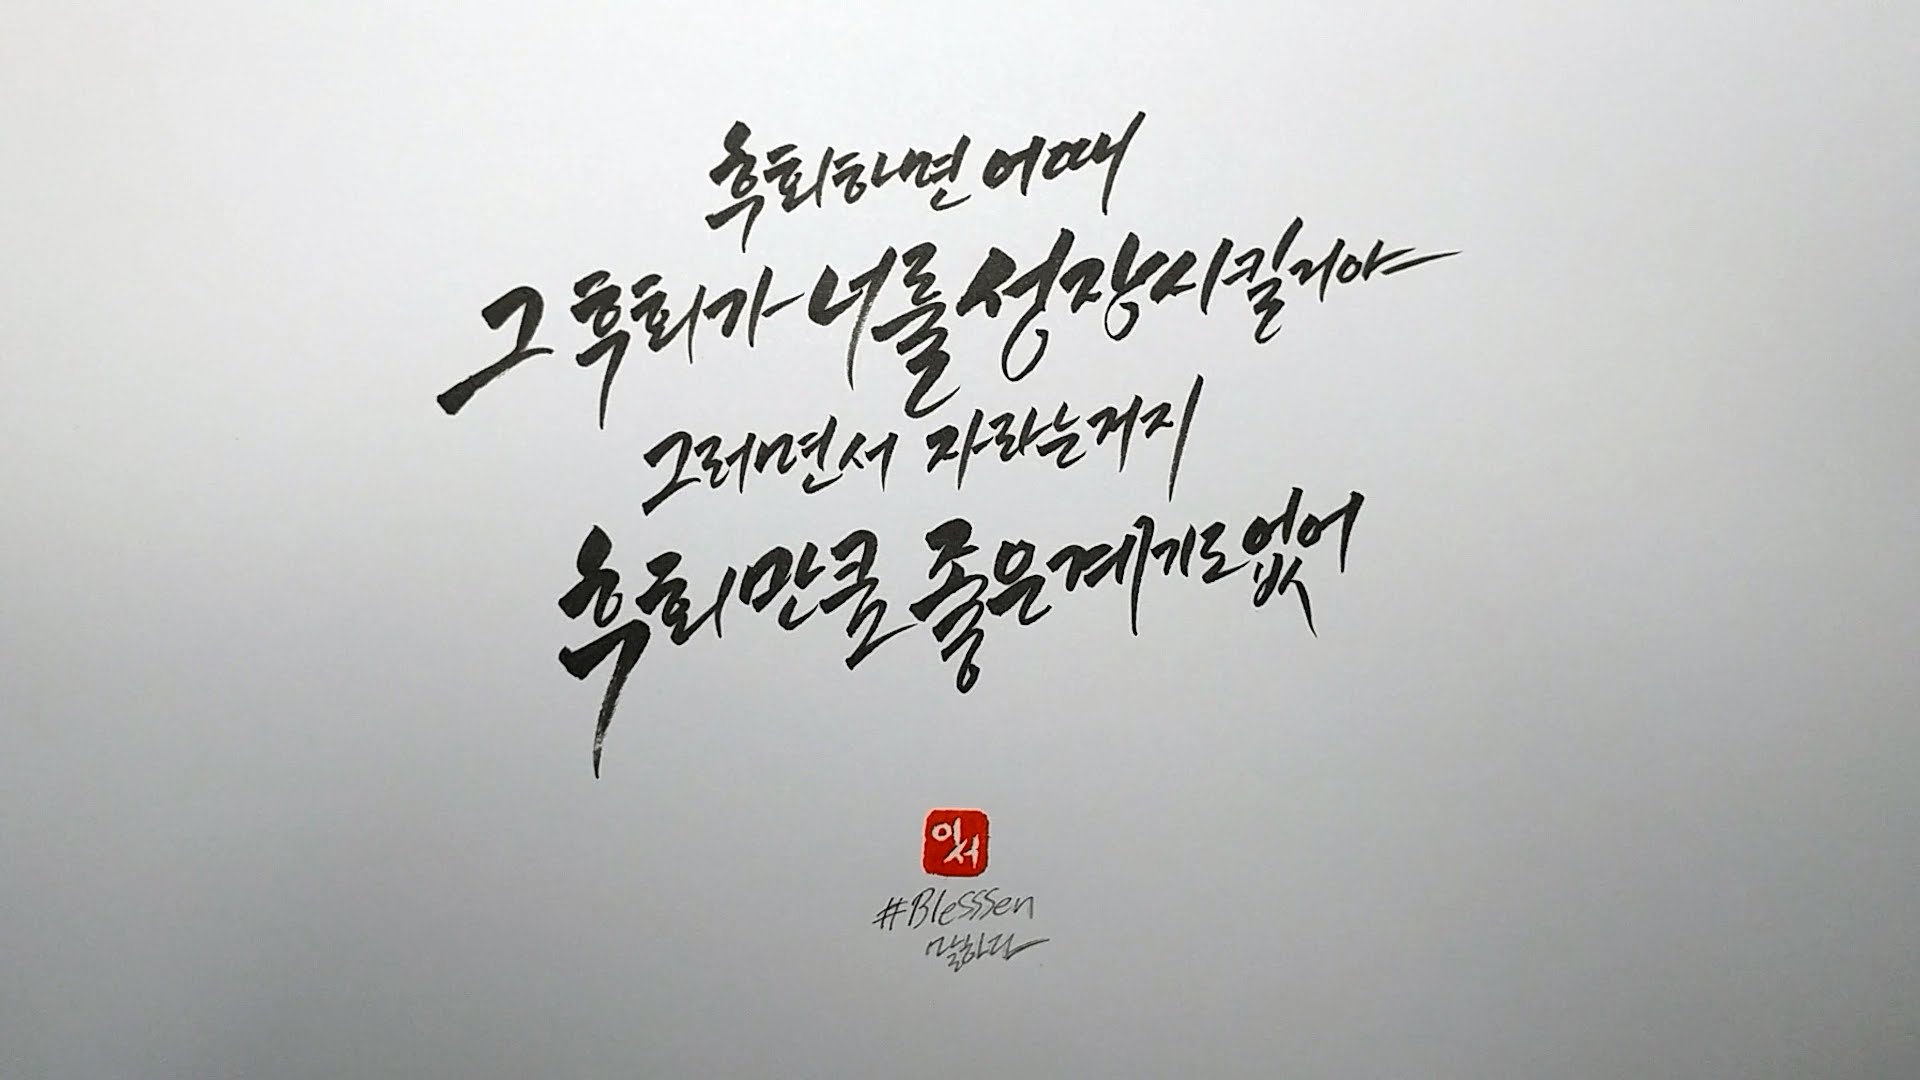 후회하면 어때
그 후회가 너를 성장시킬거야
그러면서 자라는거지
후회만큼 좋은 계기도 없어
이서
#Blesssen
말하다